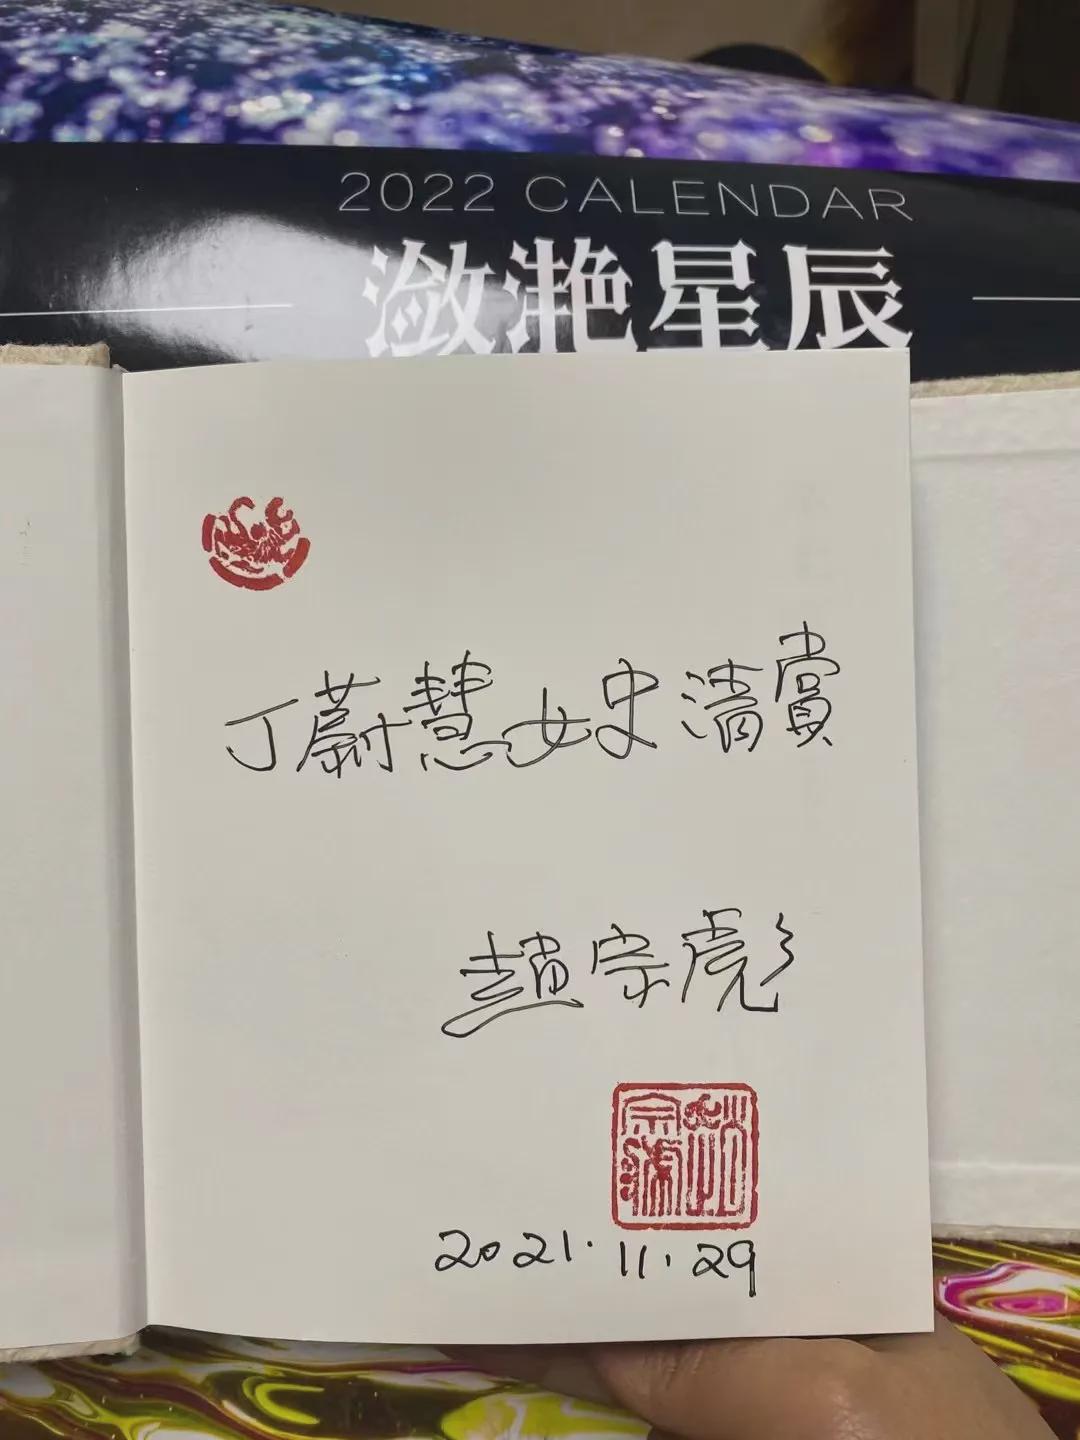 2022 CALENDAR
瀲滟星辰
丁蔚慧女史清賞
趙宗彪
2021.11.29